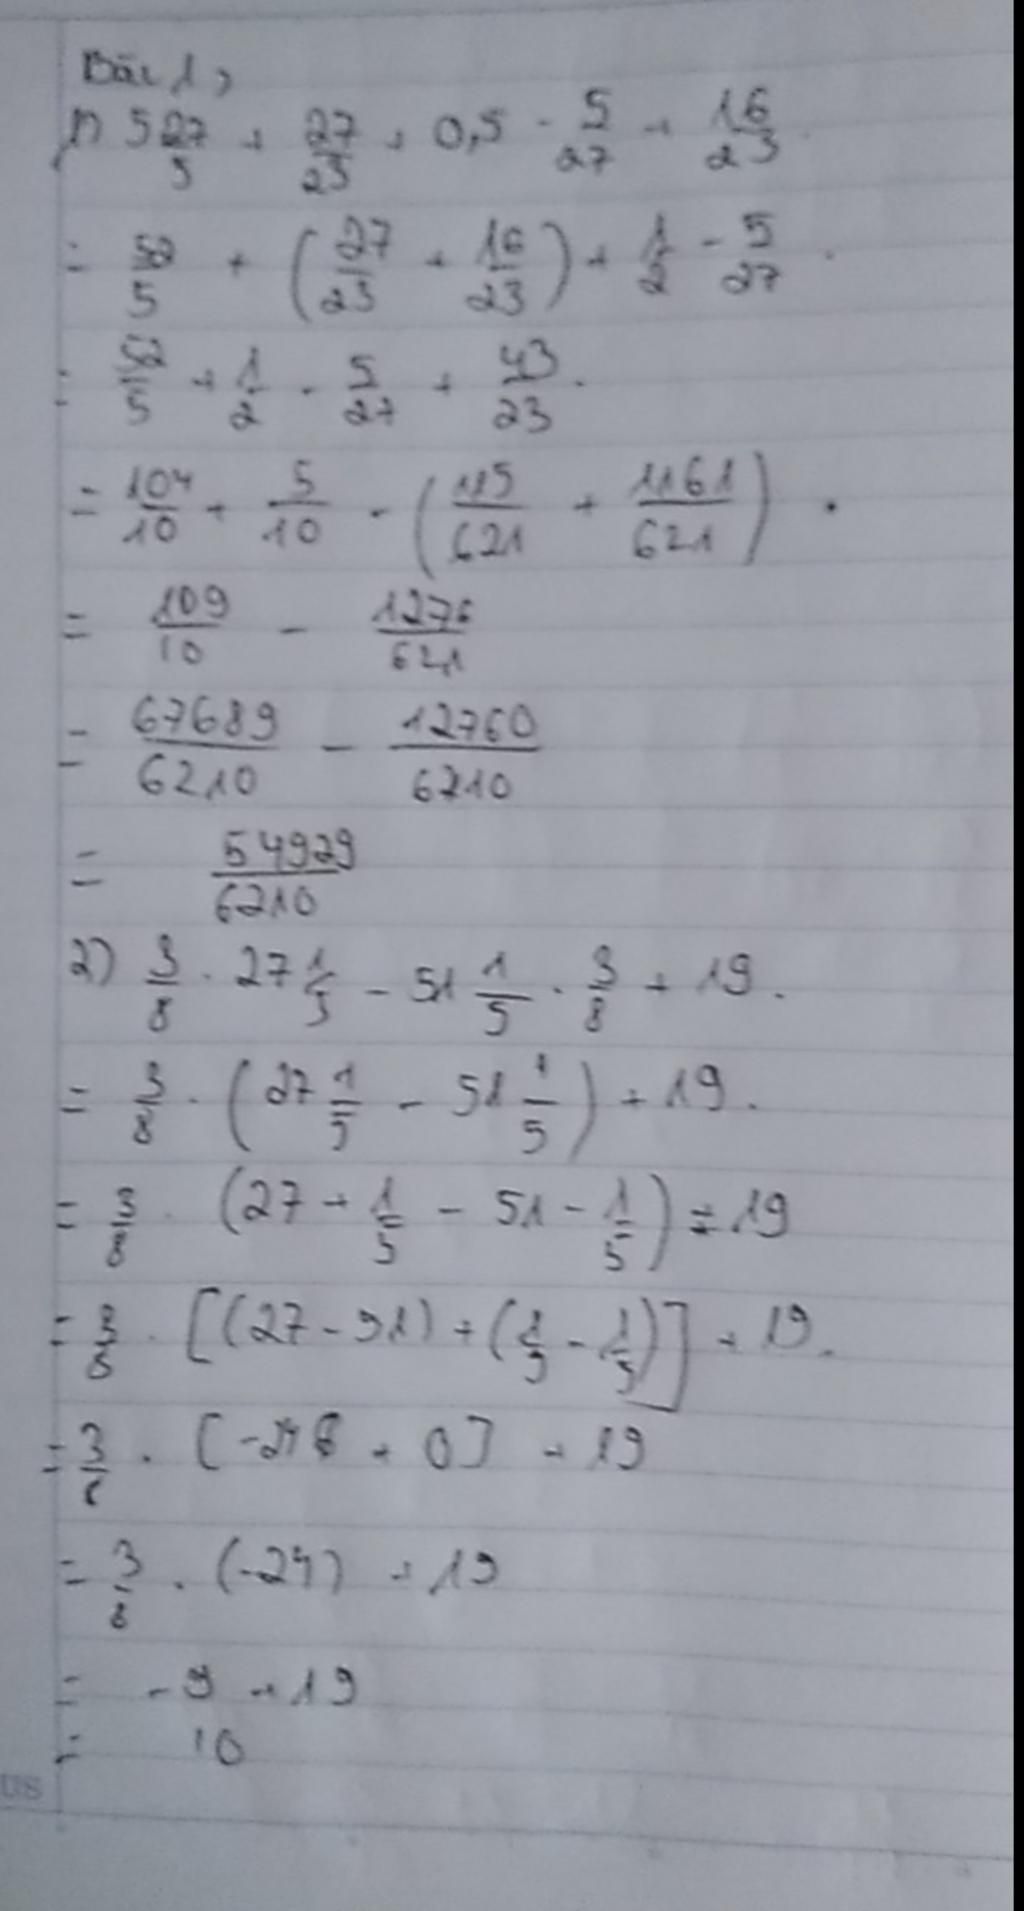 Bài 1,
1) 5 27/5 + 27/23 + 0,5 - 5/27 + 16/23
= 52/5 + (27/23 + 16/23) + 1/2 - 5/27.
= 52/5 + 1/2 - 5/27 + 43/23.
= 104/10 + 5/10 - (115/621 + 1161/621).
= 109/10 - 1276/621
= 67689/6210 - 12760/6210
= 54929/6210
2) 3/8 . 27 1/5 - 51 1/5 . 3/8 + 19.
= 3/8 . (27 1/5 - 51 1/5) + 19.
= 3/8 . (27 + 1/5 - 51 - 1/5) + 19
= 3/8 . [(27 - 51) + (1/5 - 1/5)] + 19.
= 3/8 . [-24 + 0] + 19
= 3/8 . (-24) + 19
= -9 + 19
= 10